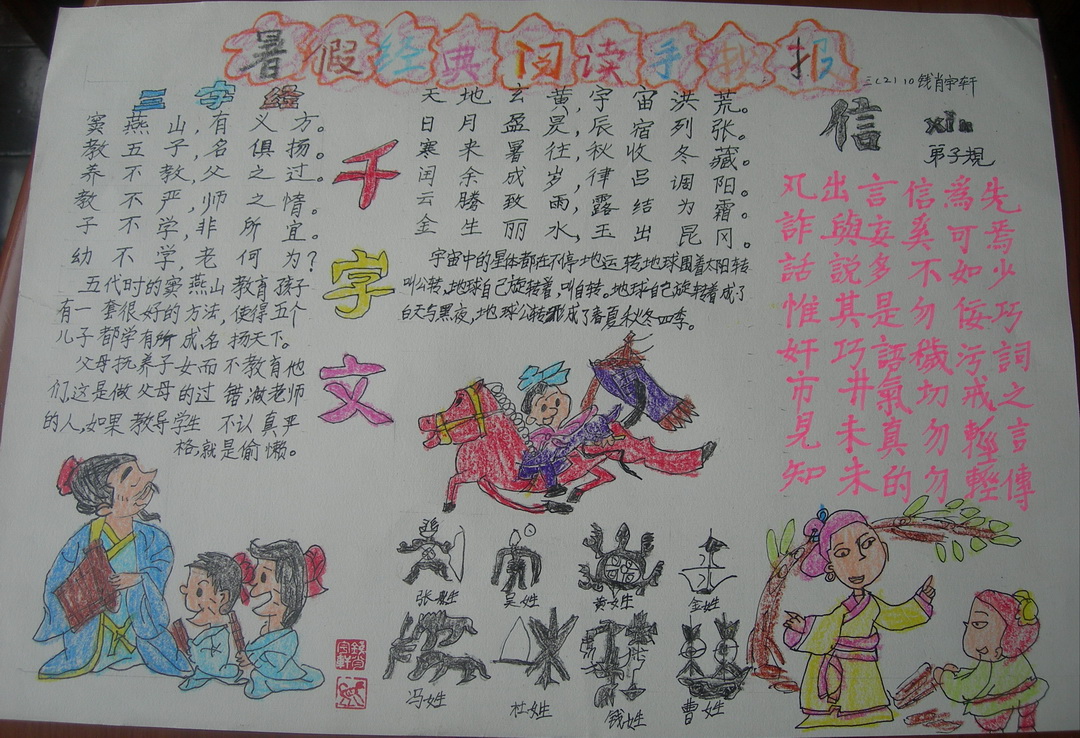 暑假经典阅读手抄报
三(2)10钱肖宇轩
三字经
窦燕山,有义方。
教五子,名俱扬。
养不教,父之过。
教不严,师之惰。
子不学,非所宜。
幼不学老何为?
五代时的窦燕山教育孩子
有一套很好的方法,使得五个
儿子都学有所成名扬天下。
父母抚养子女而不教育他
们,这是做父母的过错做老师
的人,如果教导学生不认真严
格,就是偷懒。
千字文
天地玄黄,宇宙洪荒。
日月盈昃,辰宿列张。
寒来暑往,秋收冬藏。
闰余成岁,律吕调阳。
云腾致雨,露结为霜。
金生丽水,玉出昆冈。
宇宙中的星体都在不停地运转地球围着太阳转
叫公转,地球自己旋转着,叫自转。地球自己旋转着成了
白天与黑夜,地球公转形成了春夏秋冬四季。
信
xìn
弟子規
凡出言信為先
詐與妄奚可焉
話説多不如少
惟其是勿佞巧
奸巧語穢污詞
市井氣切戒之
見未真勿輕言
知未的勿輕傳
张姓
吴姓
黄姓
金姓
冯姓
杜姓
钱姓
曹姓